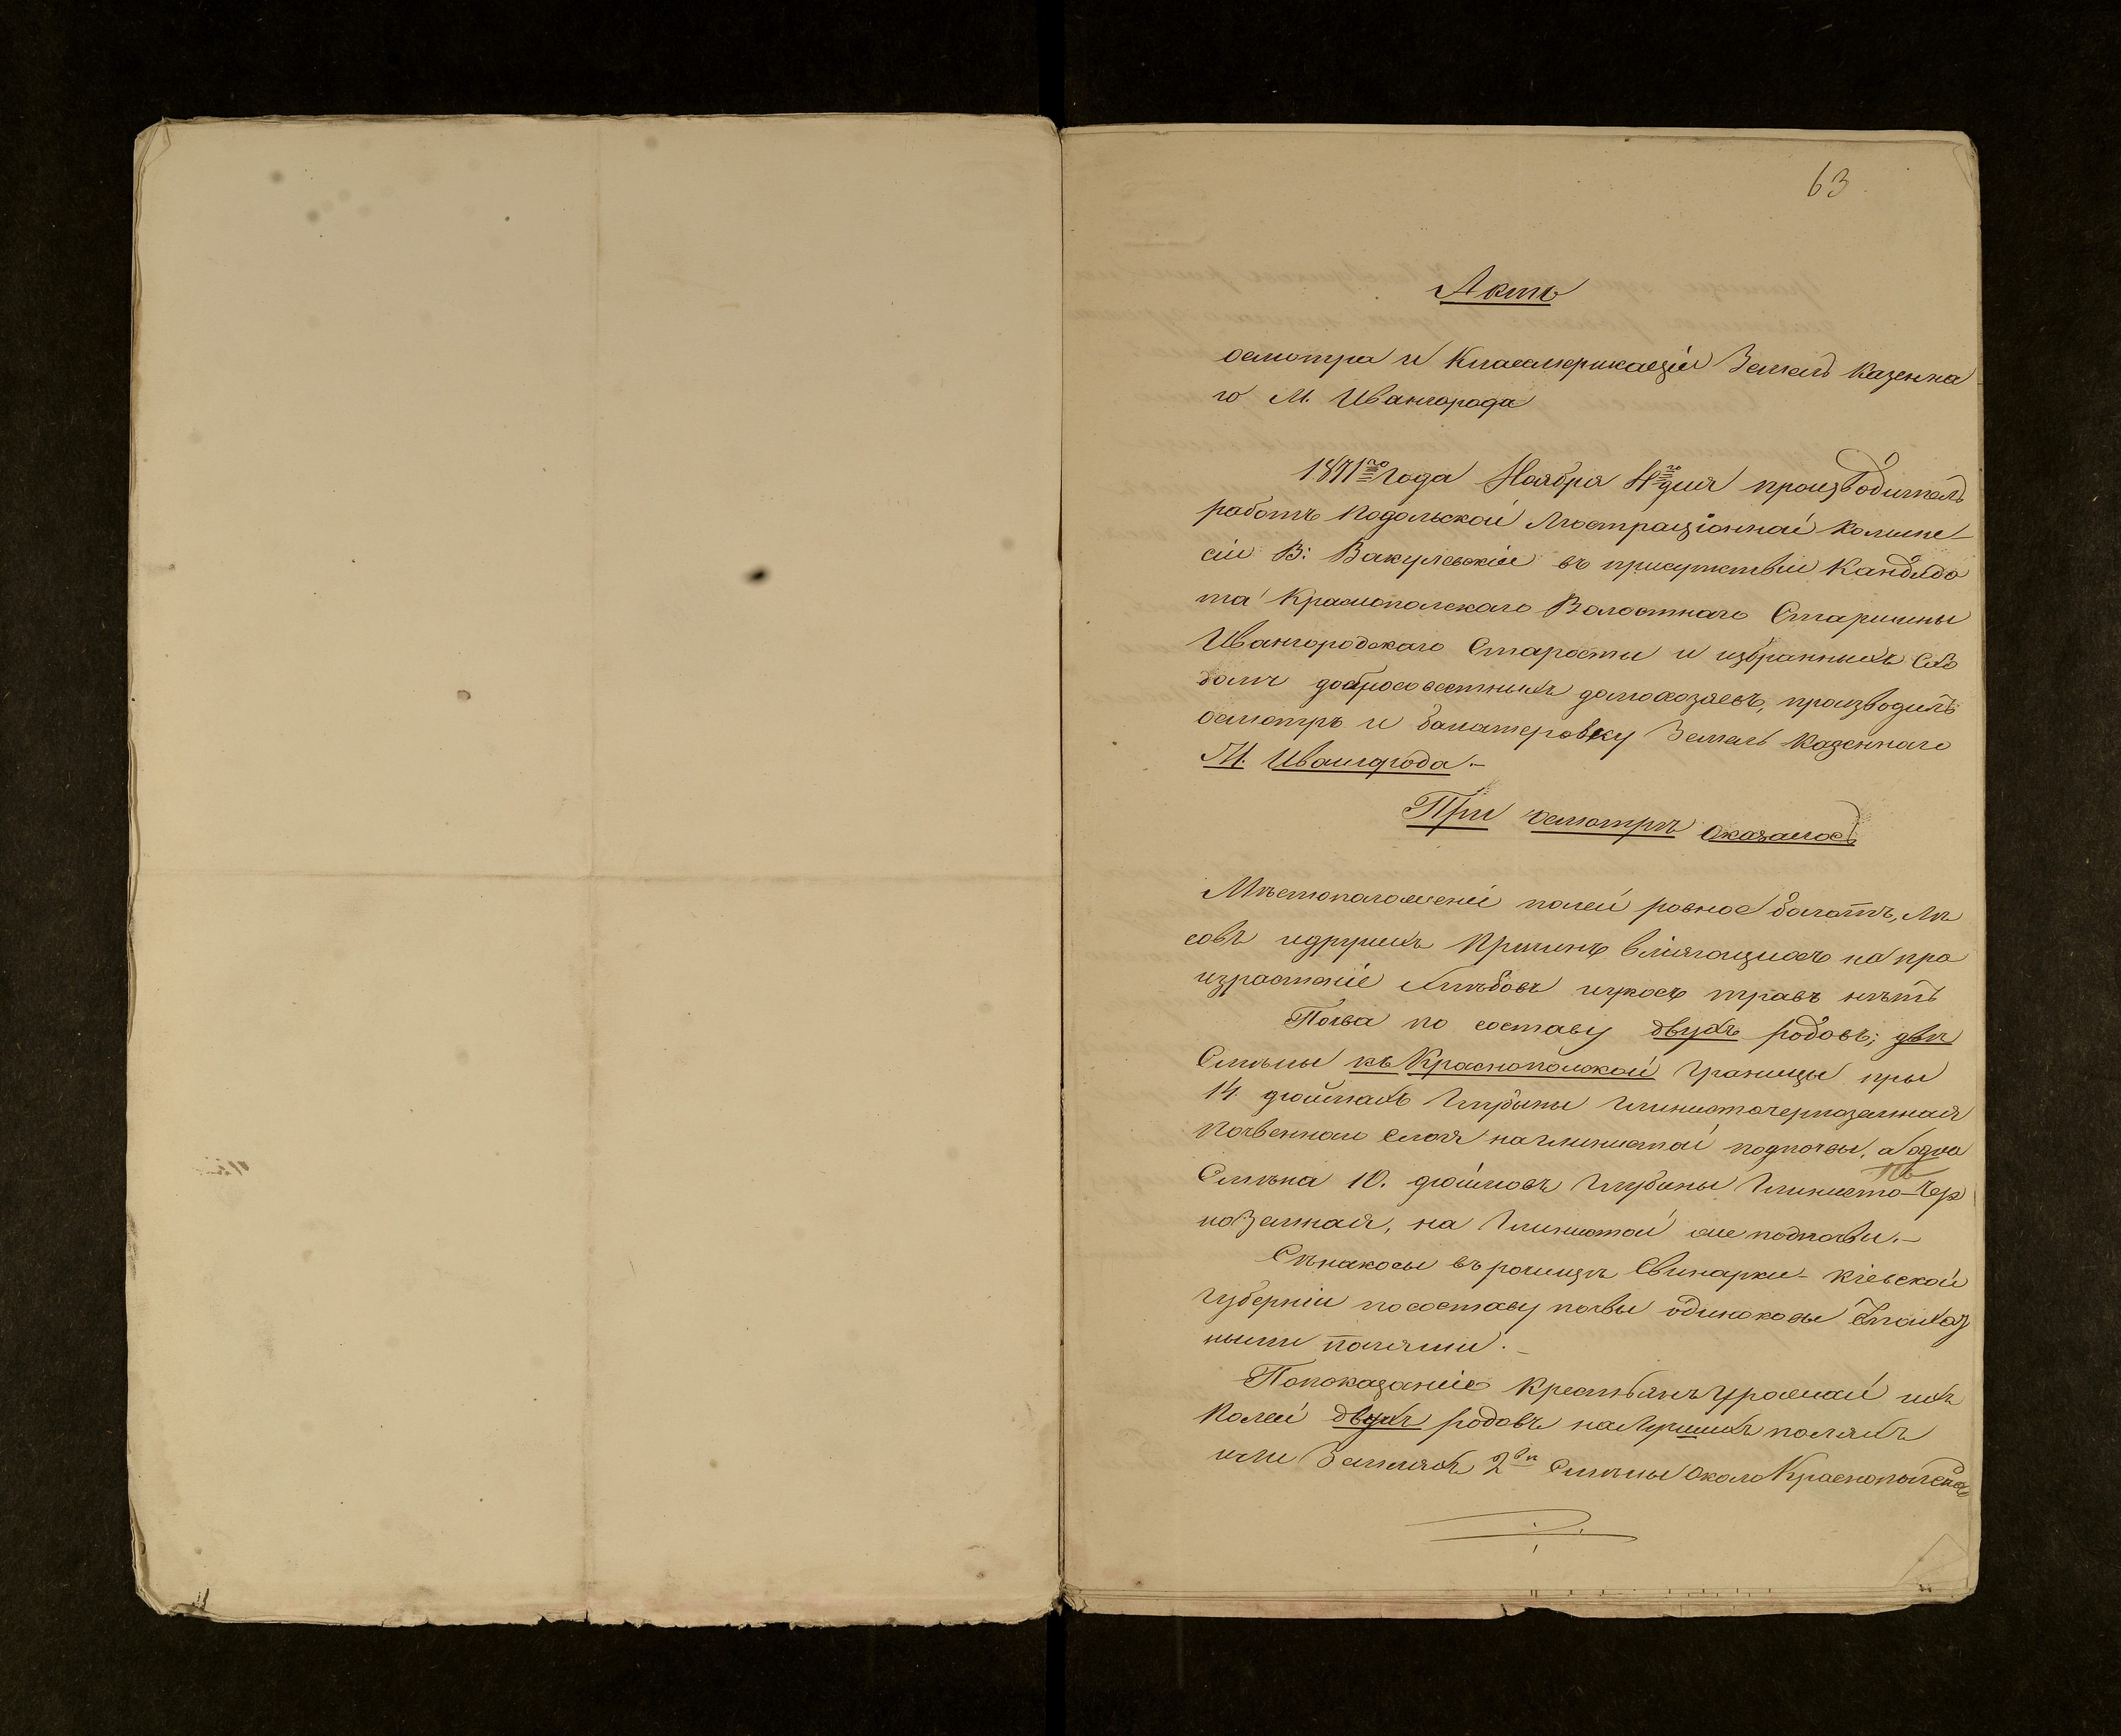 63
Актъ
осмотра и Классификаціи Земель Казенна
го М. Ивангорода
1871го года Ноября 4го дня производитель
работъ Подольской Люстраціонной Коммис
сіи В: Вакулевскій въ присутствіи Кандида
та Краснополскаго Волостнаго Старшины
Ивангородскаго Старосты и избранныхъ
добросовестныхъ домохозяевъ, производилъ
осмотръ и бонитеровку Земель Казеннаго
М. Ивангорода.-
При осмотрѣ оказалось
Мѣстоположеніе полей ровное болотъ, лѣ
совъ и другихъ Причинъ вліяющихъ на про
израстаніе Хлѣбовъ и укосъ травъ нѣтъ
Почва по составу двухъ родовъ; двѣ
Смѣны къ Краснополской границы при
14. дюймахъ глубины глинисточерноземная
на глинистой подпочвы, а одна
Смѣна 10. дюймовъ глубины Глинисто-Чер
ноземная, на глинистой же подпочвы.-
Сѣнокосы въ рочищѣ Свинарки - Кіевской
Губерніи по составу почвы одинаковы
ными полями.-
По показаніе Крестьянъ урожай ихъ
Полей двухъ родовъ на лучшихъ поляхъ
или Земляхъ 2вѣ Смѣны около